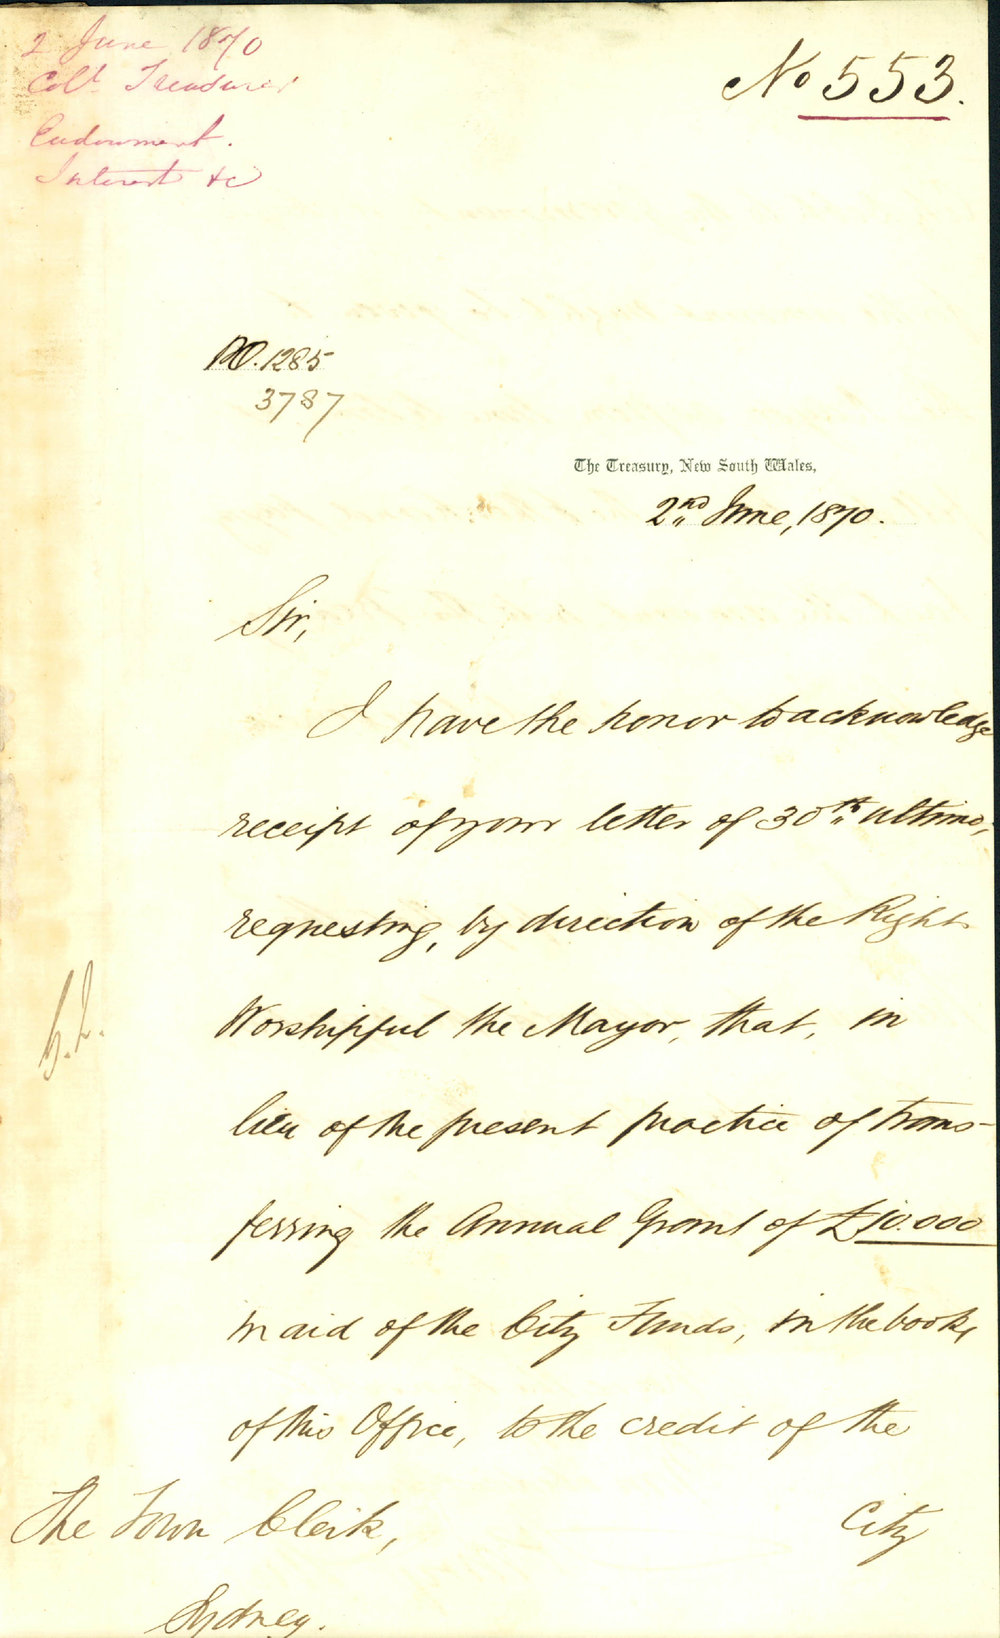 2 June 1870
Coll. Treasurer
Endowment.
Interest &c
No 553.
1285
3787
The Treasury, New South Wales,
2nd June, 1870.
Sir,
I have the honor to acknowledge
receipt of your letter of 30th ultimo,
requesting, by direction of the Right
Worshipful the Mayor, that, in
lieu of the present practice of trans-
ferring the Annual Grant of £10.000
in aid of the City Funds, in the books
of this Office, to the credit of the
City
The Town Clerk,
Sydney.